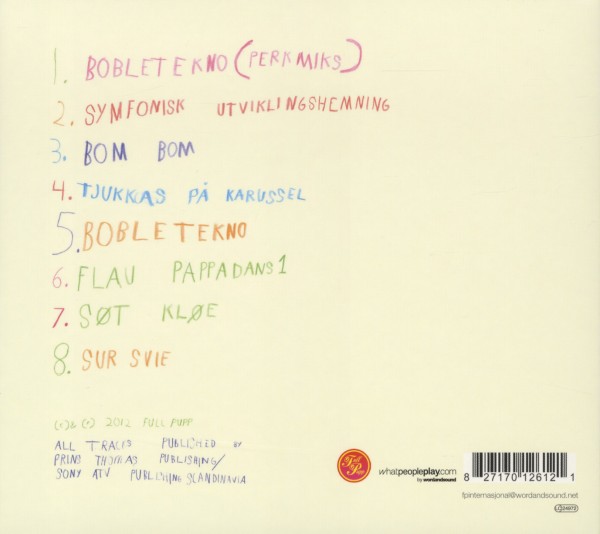 1. BOBLETEKNO (PERKMIKS)
2. SYMFONISK UTVIKLINGSHEMNING
3. BOM BOM
4. TJUKKAS PÅ KARUSSEL
5. BOBLETEKNO
6. FLAU PAPPADANS 1
7. SØT KLØE
8. SUR SVIE
(c) & (p) 2012 FULL PUPP
ALL TRACKS PUBLISHED BY
PRINS THOMAS PUBLISHING/
SONY ATV PUBLISHING SCANDINAVIA
Full Pupp
whatpeopleplay.com
by wordandsound
8 27170 12612 1
fpinternasjonal@wordandsound.net
LC 24973